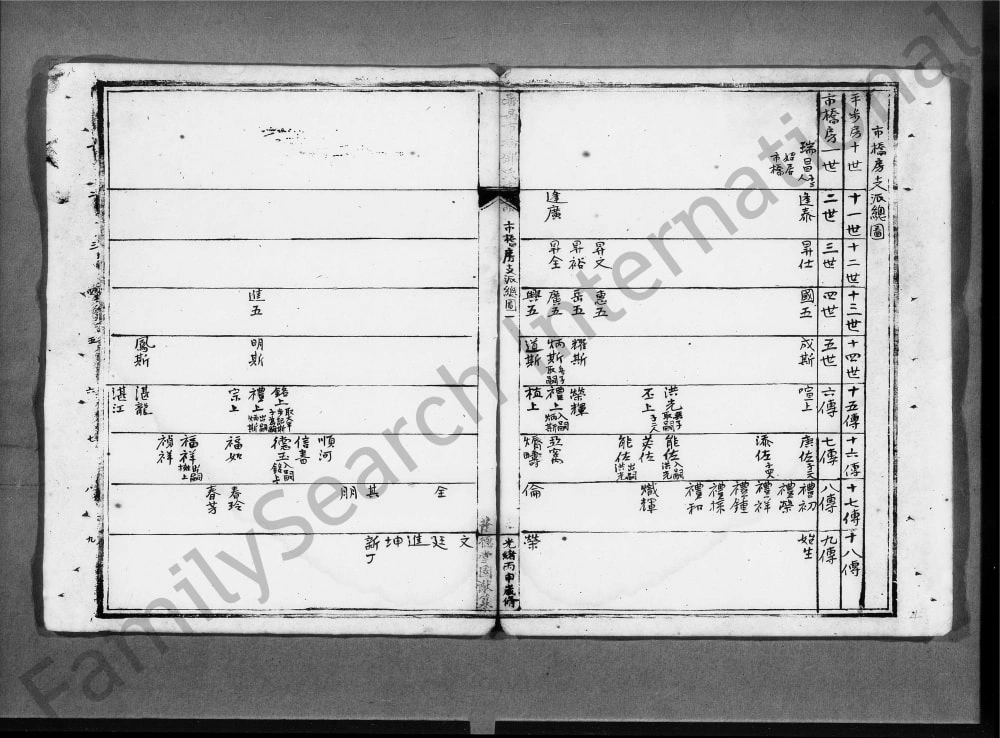 市橋房支派總圖
平步房十世
十一世
十二世
十三世
十四世
十五傳
十六傳
十七傳
十八傳
市橋房一世
二世
三世
四世
五世
六傳
七傳
八傳
九傳
瑞昌
始居市橋
逢泰
逢廣
昇仕
昇文
昇裕
昇全
國五
惠五
岳五
廣五
興五
成斯
耀斯
炳斯
道斯
喧上
洪光
丕上
榮輝
禮上
植上
康佐
添佐
能佐入嗣洪光
英佐
能佐出嗣洪光
亞窩
禮初
禮際
禮祥
禮鍾
禮揉
禮和
熾輝
倫
始生
榮
市橋房支派總圖一
光緒丙申歲修
進五
明斯
鳳斯
銘上
禮上出嗣炳斯
宗上
湛龍
湛江
順河
信書
德玉入嗣銘上
福如
福祥出嗣
禎祥
全
其
朋
春玲
春芳
文
廷
進
坤
新丁
FamilySearch International